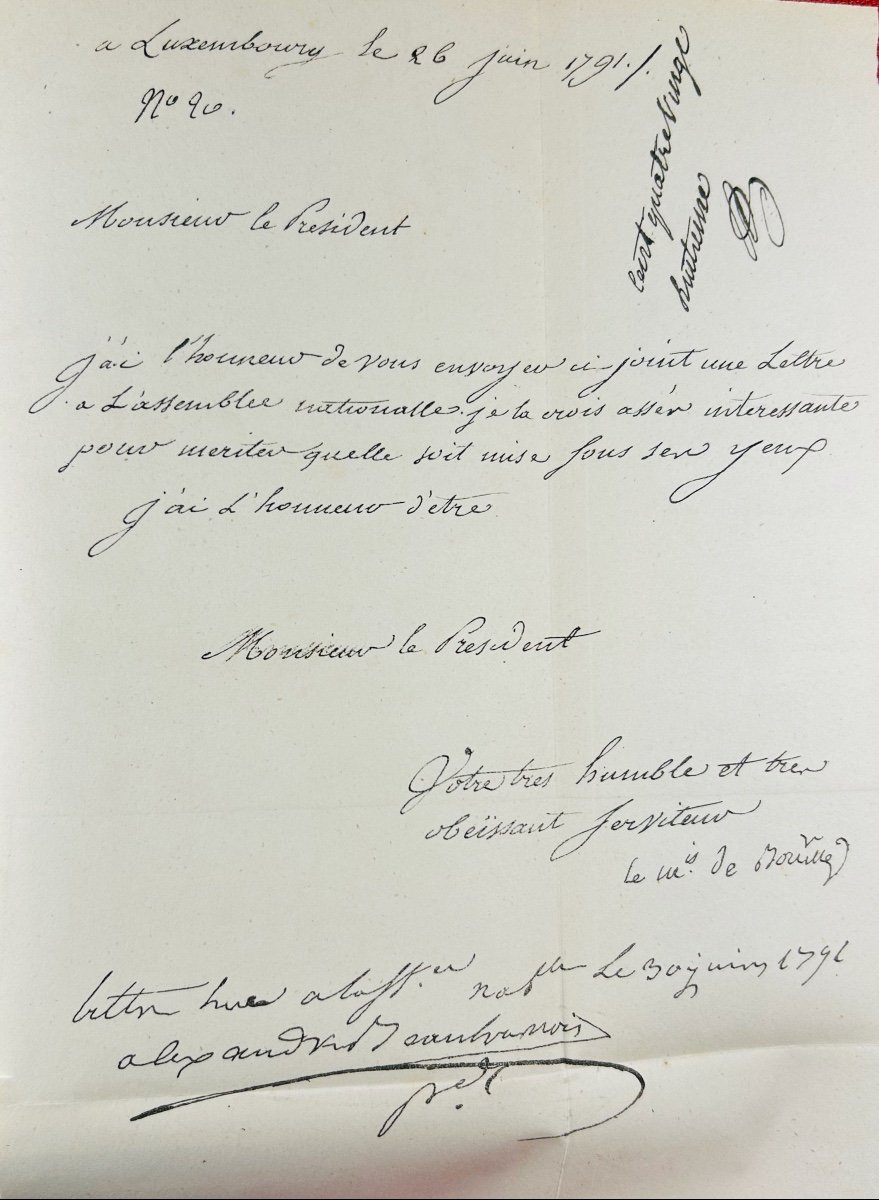 a Luxembourg le 26 juin 1791./.
No 20.
Cart quatre Vingt
huitieme
Monsieur le President
j'ai l'honneur de vous envoyer ci joint une Lettre
a L'assemblée nationalle. je la crois assér interessante
pour meriter quelle soit mise sous ser yeux
j'ai L'honneur d'être
Monsieur le President
Votre tres humble et trer
obeïssant serviteur
le mis. de Bouillé
lettre lue a lass.ée natlle Le 30 juin 1791
alexandre Beauharnois
pr.